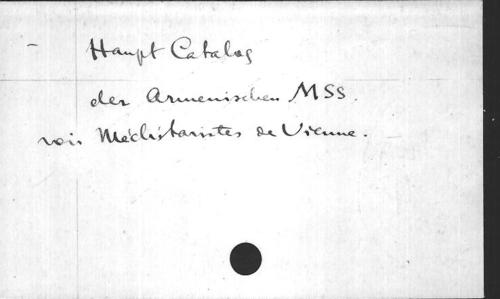 – Haupt Catalog
der Armenischen MSS.
voir Méchitaristes de Vienne.